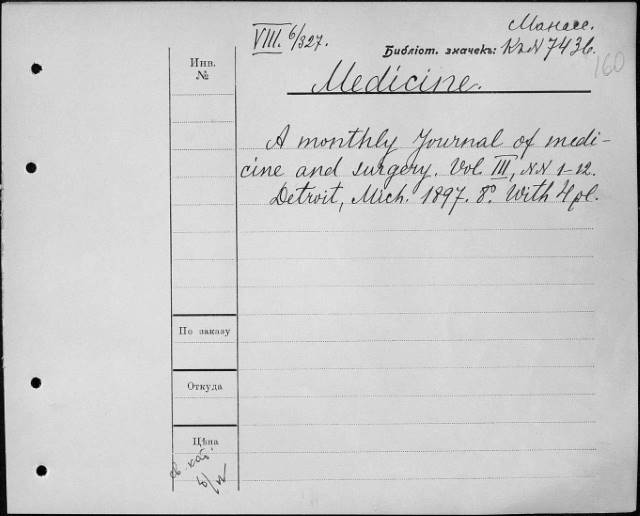 Манасс.
VIII. 6/327.
Библіот. значекъ: К.N 7436.
160
Инв.
№
Medicine.
A monthly Journal of medi-
cine and surgery. Vol. III, NN 1-12.
Detroit, Mich. 1897. 8°. With 4 pl.
По заказу
Откуда
Цѣна